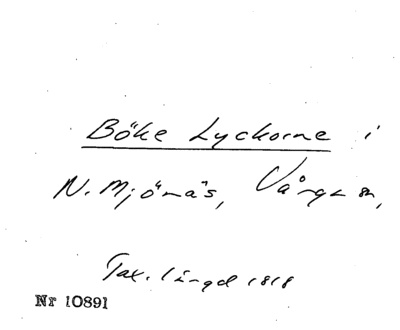 Böke Lyckorne i
N. Mjönäs, Vånga sn,
Tax. längd 1818
Nr 10891